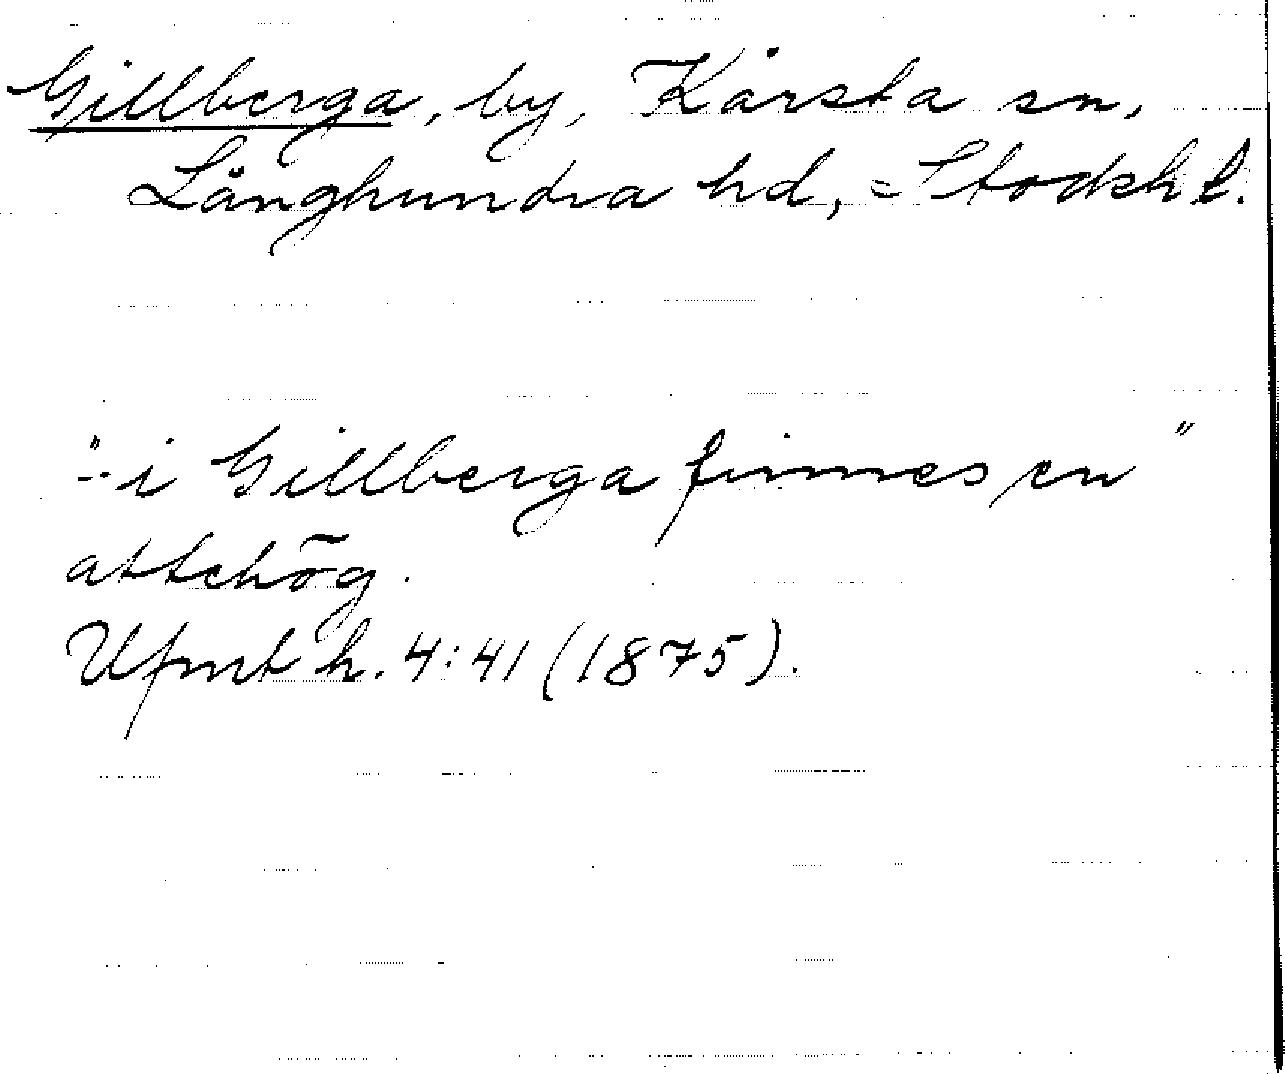 Gillberga, by, Kårsta sn,
Långhundra hd, Stockh l.
"-- i Gillberga finnes en "
attehög.
Ufmt h. 4:41 (1875).